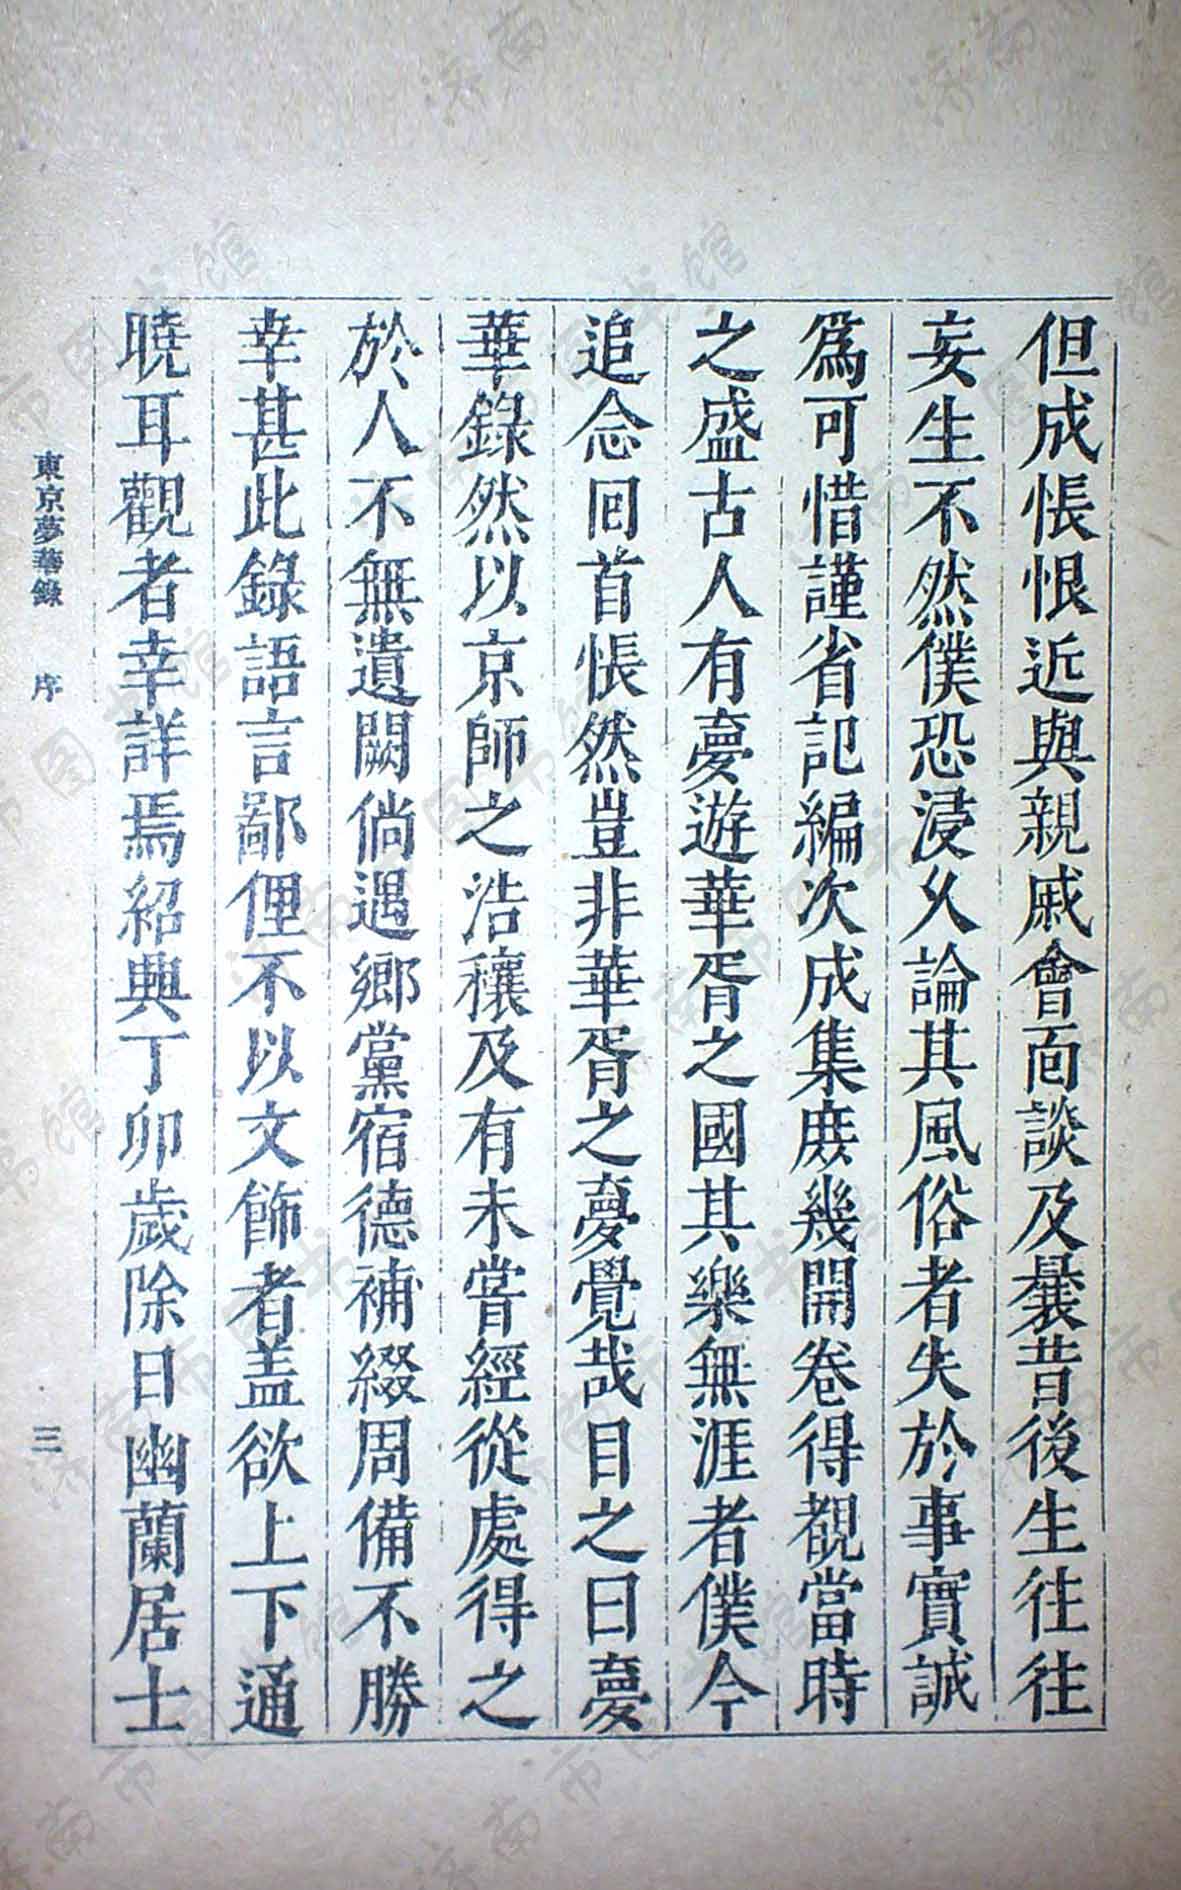 但成悵恨近與親戚會面談及曩昔後生往往
妄生不然僕恐浸久論其風俗者失於事實誠
為可惜謹省記編次成集庶幾開卷得覩當時
之盛古人有夢遊華胥之國其樂無涯者僕今
追念回首悵然豈非華胥之夢覺哉目之曰夢
華錄然以京師之浩穰及有未嘗經從處得之
於人不無遺闕倘遇鄉黨宿德補綴周備不勝
幸甚此錄語言鄙俚不以文飾者盖欲上下通
曉耳觀者幸詳焉紹興丁卯歲除日幽蘭居士
東京夢華錄 序 三
济南市图书馆